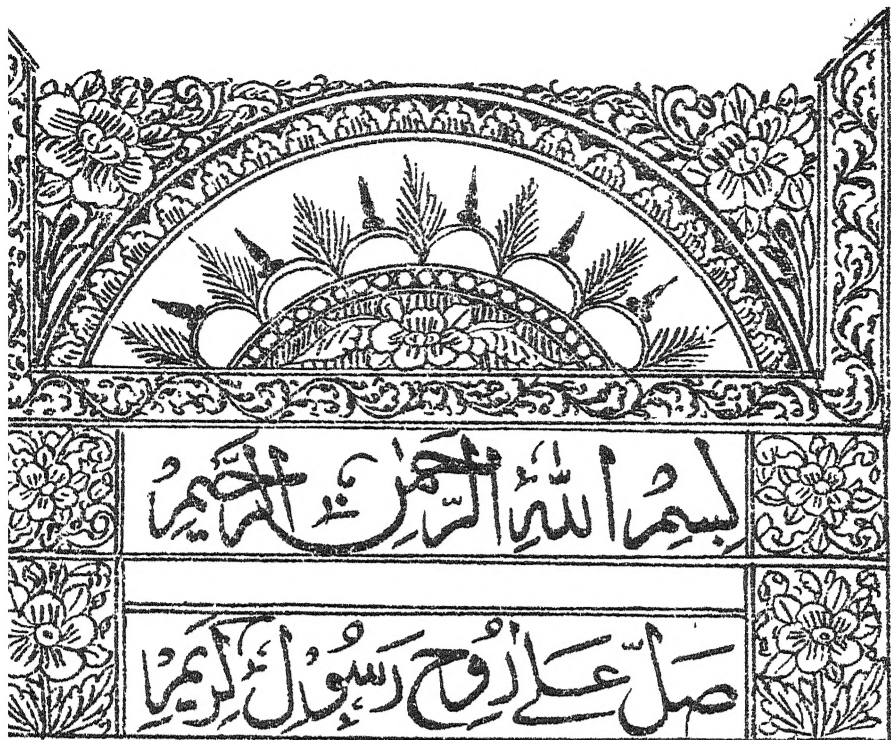 بِسْمِ اللهِ الرَّحْمٰنِ الرَّحِيْمِ
صَلِّ عَلٰے رُوْحِ رَسُوْلٍ كَرِيْمٍ